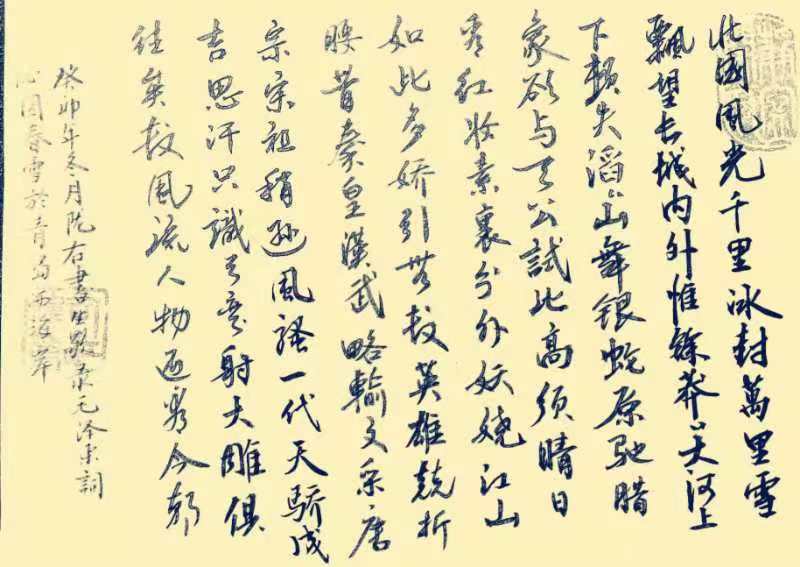 北國風光千里冰封萬里雪
飄望長城内外惟餘莽々大河上
下頓失滔々山舞銀蛇原馳腊
象欲与天公試比高须晴日
看红妆素裹分外妖娆江山
如此多娇引無数英雄競折
腰昔秦皇漢武略輸文采唐
宗宋祖稍逊風騷一代天驕成
吉思汗只識弯弓射大雕俱
往矣数風流人物还看今朝
癸卯年冬月阮右書生敬录毛泽东詞
沁园春雪於青岛西海岸